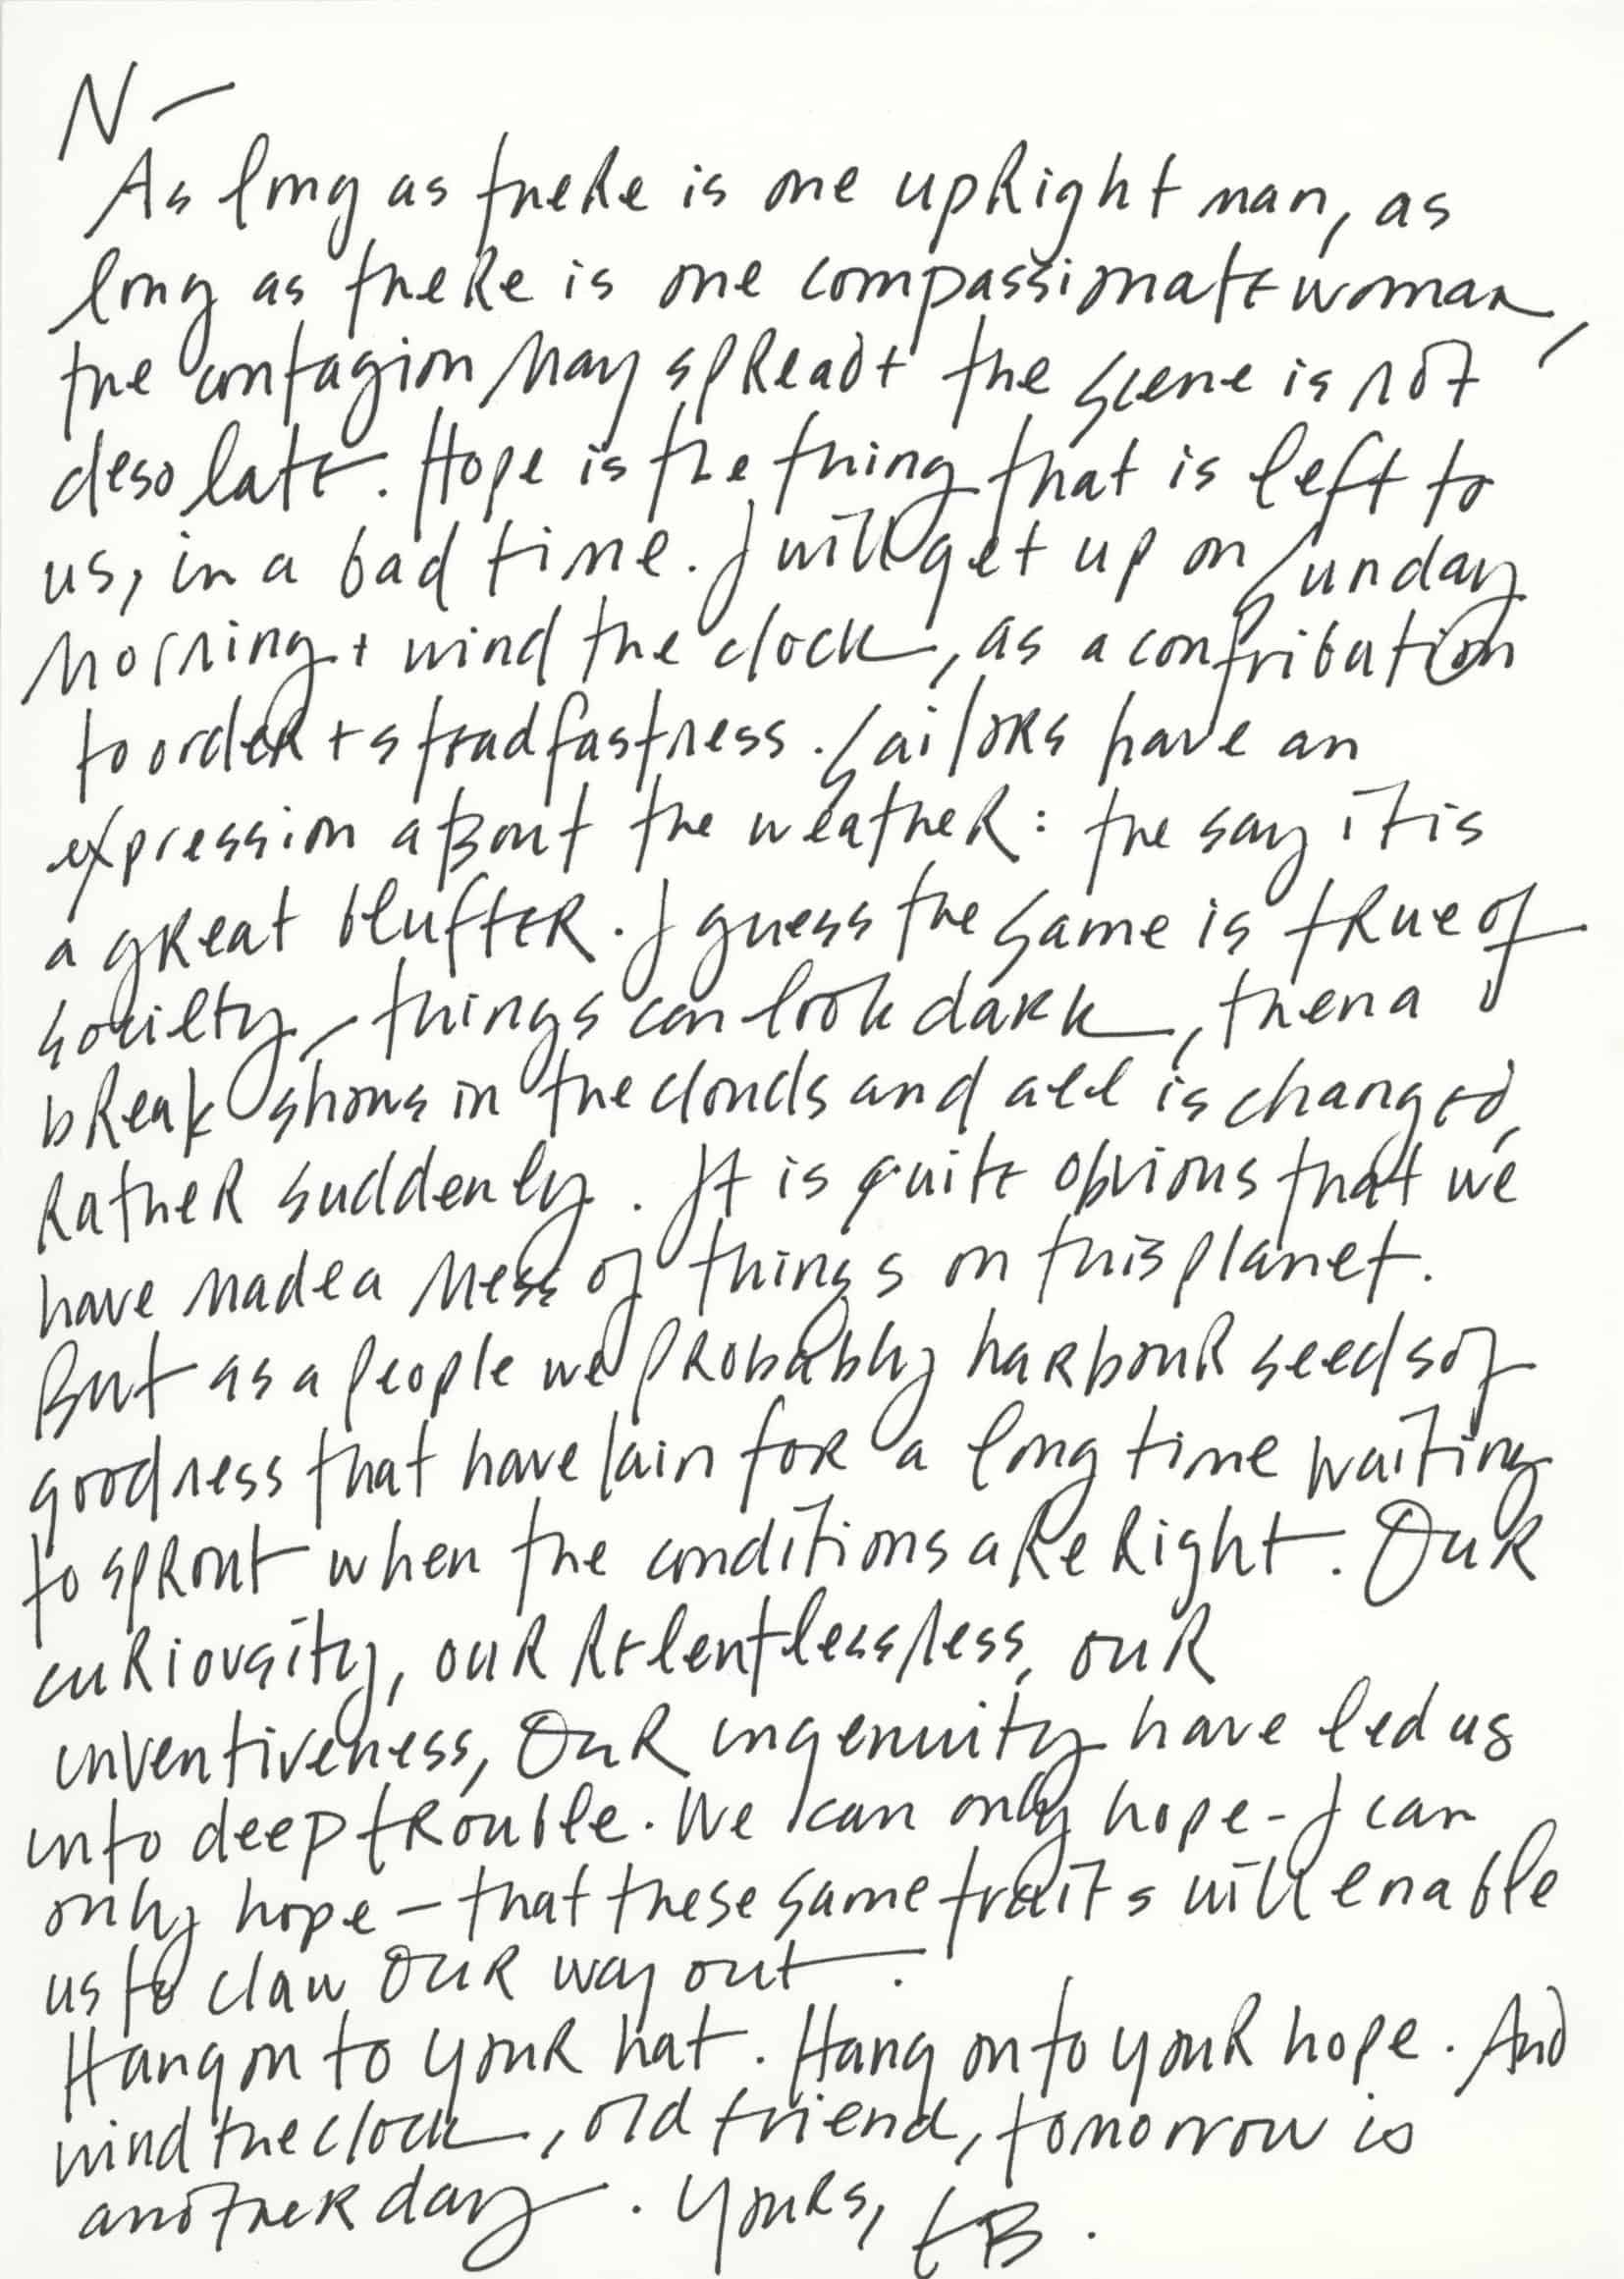 N—
As long as there is one upright man, as
long as there is one compassionate woman,
the contagion may spread + the scene is not
desolate. Hope is the thing that is left to
us, in a bad time. I will get up on Sunday
morning + wind the clock, as a contribution
to order + steadfastness. Sailors have an
expression about the weather: the say it is
a great bluffer. I guess the same is true of
socielty - things can look dark, then a
break shows in the clouds and all is changed,
rather suddenly. It is quite obvious that we
have made a mess of things on this planet.
But as a people we probably harbour seeds of
goodness that have lain for a long time waiting
to sprout when the conditions are right. Our
curiousity, our relentlessness, our
inventiveness, our ingenuity have led us
into deep trouble. We can only hope - I can
only hope — that these same traits will enable
us to claw our way out.
Hang on to your hat. Hang onto your hope. And
wind the clock, old friend, tomorrow is
another day. Yours, EB.